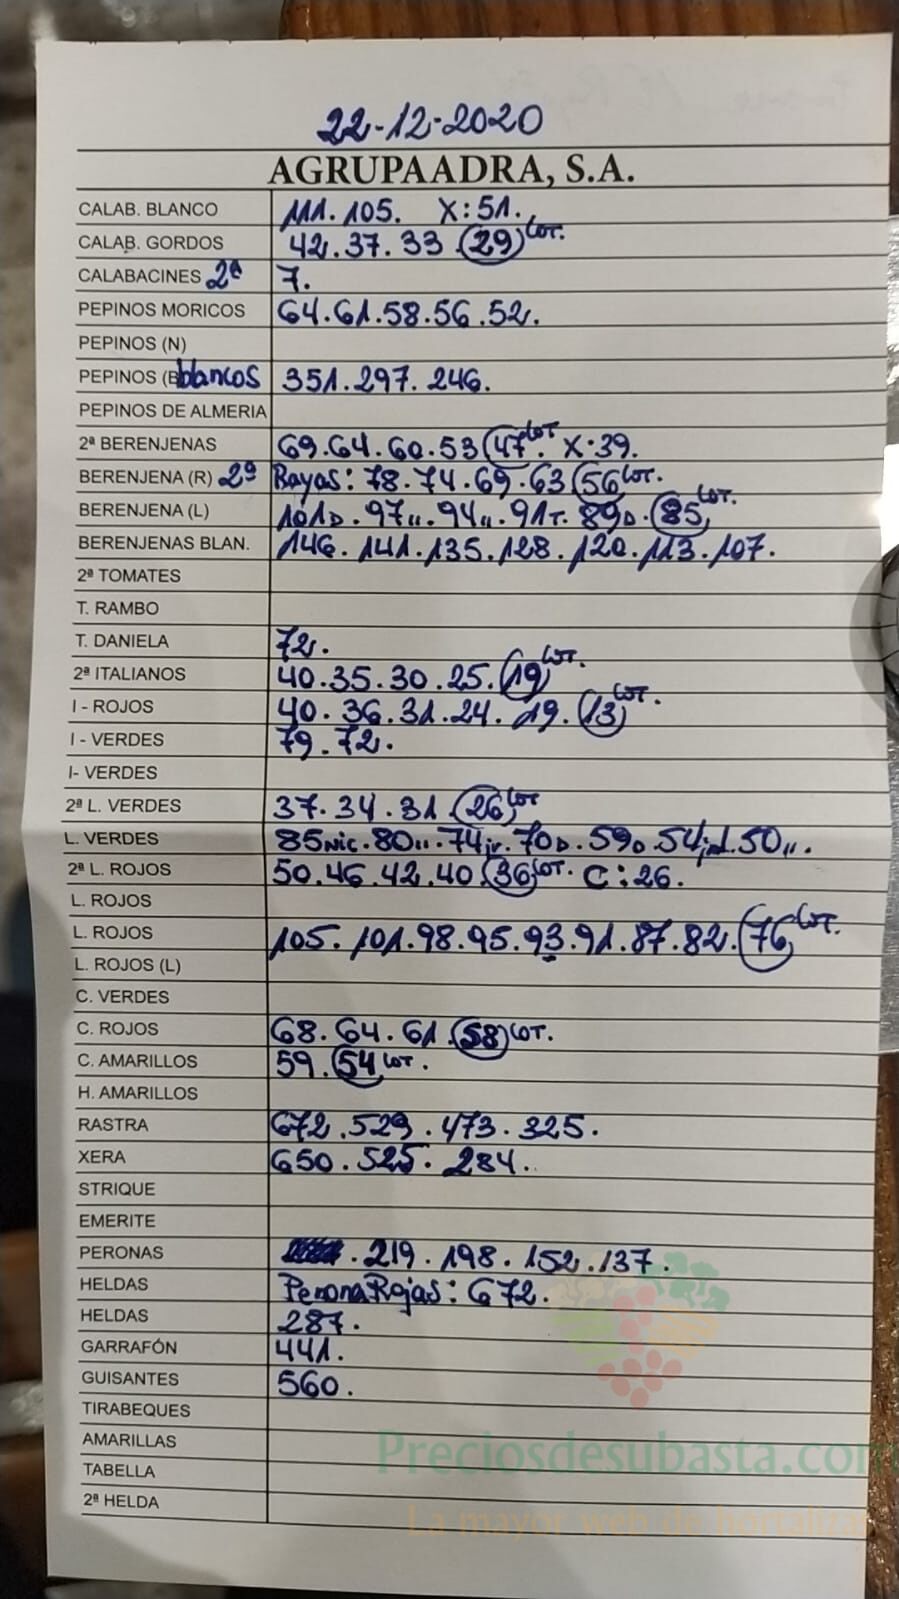 22-12-2020
AGRUPAADRA, S.A.
CALAB. BLANCO 111. 105. X:51.
CALAB. GORDOS 42. 37. 33 29 LOT.
CALABACINES 2ª 7.
PEPINOS MORICOS 64. 61. 58. 56. 52.
PEPINOS (N)
PEPINOS (B blancos 351. 297. 246.
PEPINOS DE ALMERIA
2ª BERENJENAS 69. 64. 60. 53 47 LOT. X:39.
BERENJENA (R) 2ª Rayas: 78. 74. 69. 63 56 LOT.
BERENJENA (L) 101D. 97„. 94„. 91T. 89D. 85 LOT.
BERENJENAS BLAN. 146. 141. 135. 128. 120. 113. 107.
2ª TOMATES
T. RAMBO
T. DANIELA 72.
2ª ITALIANOS 40. 35. 30. 25. 19 LOT.
I - ROJOS 40. 36. 31. 24. 19. 13 LOT.
I - VERDES 79. 72.
I- VERDES
2ª L. VERDES 37. 34. 31. 26 LOT
L. VERDES 85 Nic. 80„. 74 70D. 59D. 54 50„.
2ª L. ROJOS 50. 46. 42. 40. 36 LOT. C: 26.
L. ROJOS
L. ROJOS 105. 101. 98. 95. 93. 91. 87. 82. 76 LOT.
L. ROJOS (L)
C. VERDES
C. ROJOS 68. 64. 61. 58 LOT.
C. AMARILLOS 59. 54 LOT.
H. AMARILLOS
RASTRA 672. 529. 473. 325.
XERA 650. 525. 284.
STRIQUE
EMERITE
PERONAS . 219. 198. 152. 137.
HELDAS Perona Rojas: 672.
HELDAS 287.
GARRAFÓN 441.
GUISANTES 560.
TIRABEQUES
AMARILLAS
Preciosdesubasta.com
TABELLA
2ª HELDA
La mayor web de hortalizas